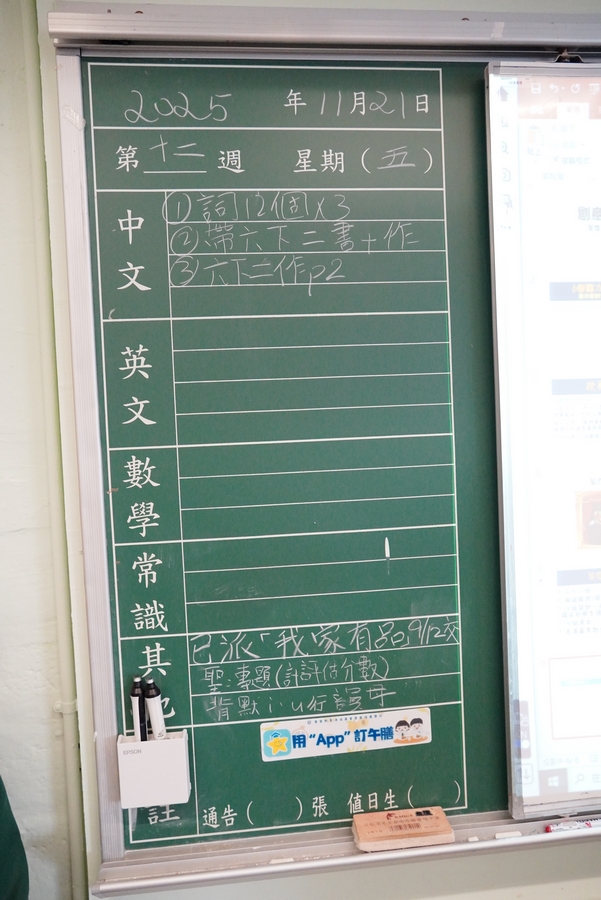 2025 年 11月21日
第 十二 週 星期（五）
中文
①詞12個x3
②帶六下二書+作
③六下二作p2
英文
數學
常識
其
已派「我家有品」9/12交
聖:專題(計評估分數)
背默 i·u行
用“App”訂午膳
EPSON
註
通告（ ）張 值日生（ ）